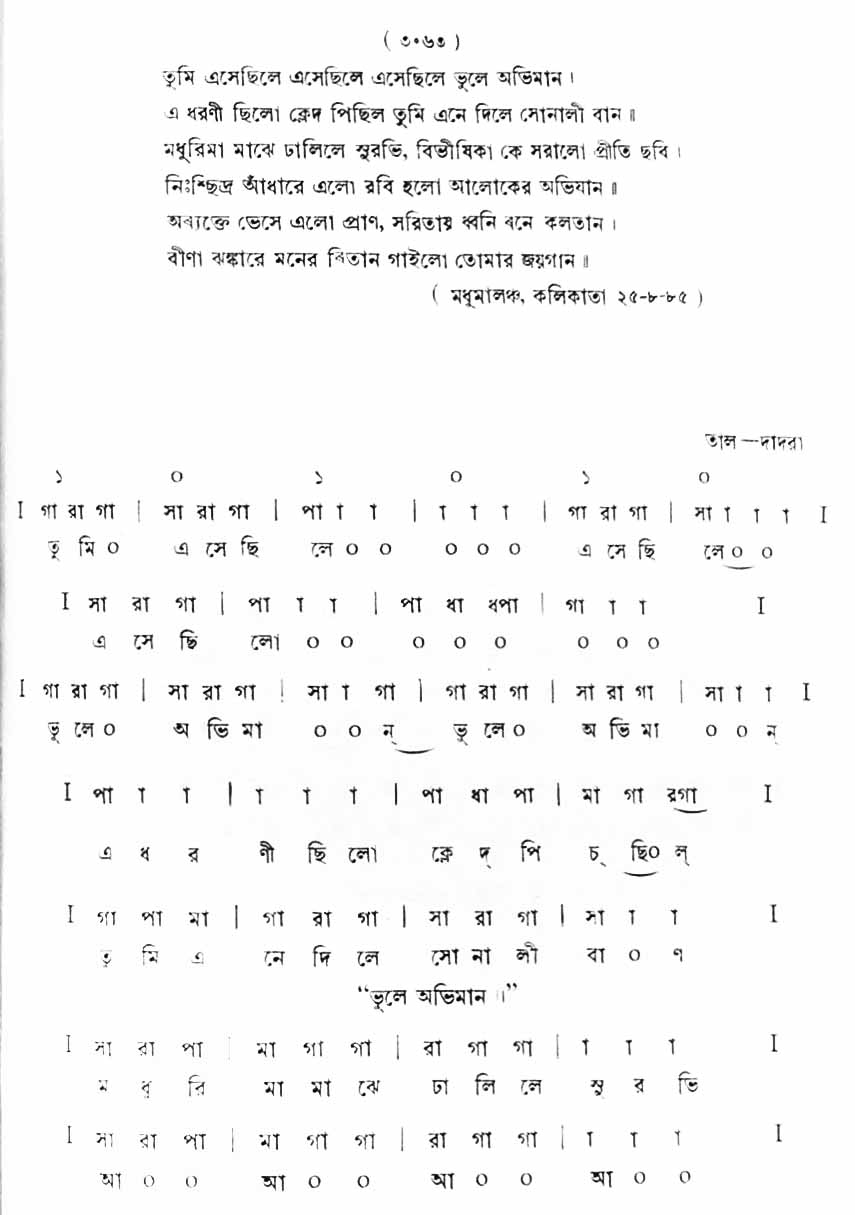 ( ৩০৬৩ )
তুমি এসেছিলে এসেছিলে এসেছিলে ভুলে অভিমান ।
এ ধরণী ছিলো ক্লেদ পিছিল তুমি এনে দিলে সোনালী বান ॥
মধুরিমা মাঝে ঢালিলে সুরভি, বিভীষিকা কে সরালো প্রীতি ছবি ।
নিঃশ্ছিদ্র আঁধারে এলো রবি হলো আলোকের অভিযান ॥
অব্যক্তে ভেসে এলো প্রাণ, সরিতায় ধ্বনি বনে কলতান ।
বীণা ঝঙ্কারে মনের বিতান গাইলো তোমার জয়গান ॥
( মধুমালঞ্চ, কলিকাতা ২৫-৮-৮৫ )
তাল—দাদরা
১ ০ ১ ০ ১ ০
I গা রা গা | সা রা গা | পা া া | া া া | গা রা গা | সা া া া I
তু মি ০ এ সে ছি লে ০ ০ ০ ০ ০ এ সে ছি লে ০ ০
I সা রা গা | পা া া | পা ধা ধপা | গা া া I
এ সে ছি লো ০ ০ ০ ০ ০ ০ ০ ০
I গা রা গা | সা রা গা | সা া গা | গা রা গা | সা রা গা | সা া া I
ভু লে ০ অ ভি মা ০ ০ ন্ ভু লে ০ অ ভি মা ০ ০ ন্
I পা া া | া া া | পা ধা পা | মা গা রগা I
এ ধ র ণী ছি লো ক্লে দ্ পি চ্ ছি০ ল্
I গা পা মা | গা রা গা | সা রা গা | সা া া I
তু মি এ নে দি লে সো না লী বা ০ ণ
“ভুলে অভিমান ।”
I সা রা পা | মা গা গা | রা গা গা | া া া I
ম ধু রি মা মা ঝে ঢা লি লে সু র ভি
I সা রা পা | মা গা গা | রা গা গা | া া া I
আ ০ ০ আ ০ ০ আ ০ ০ আ ০ ০